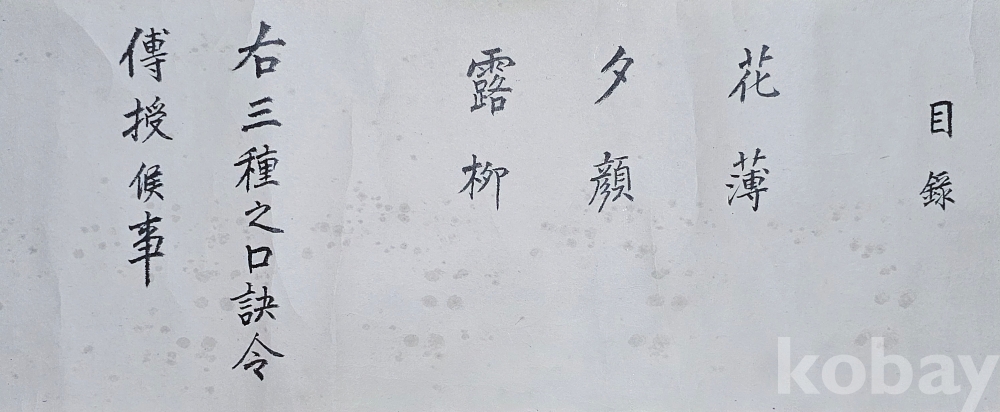 目錄
花薄
夕顔
露柳
右三種之口訣令
傳授候事
kobay